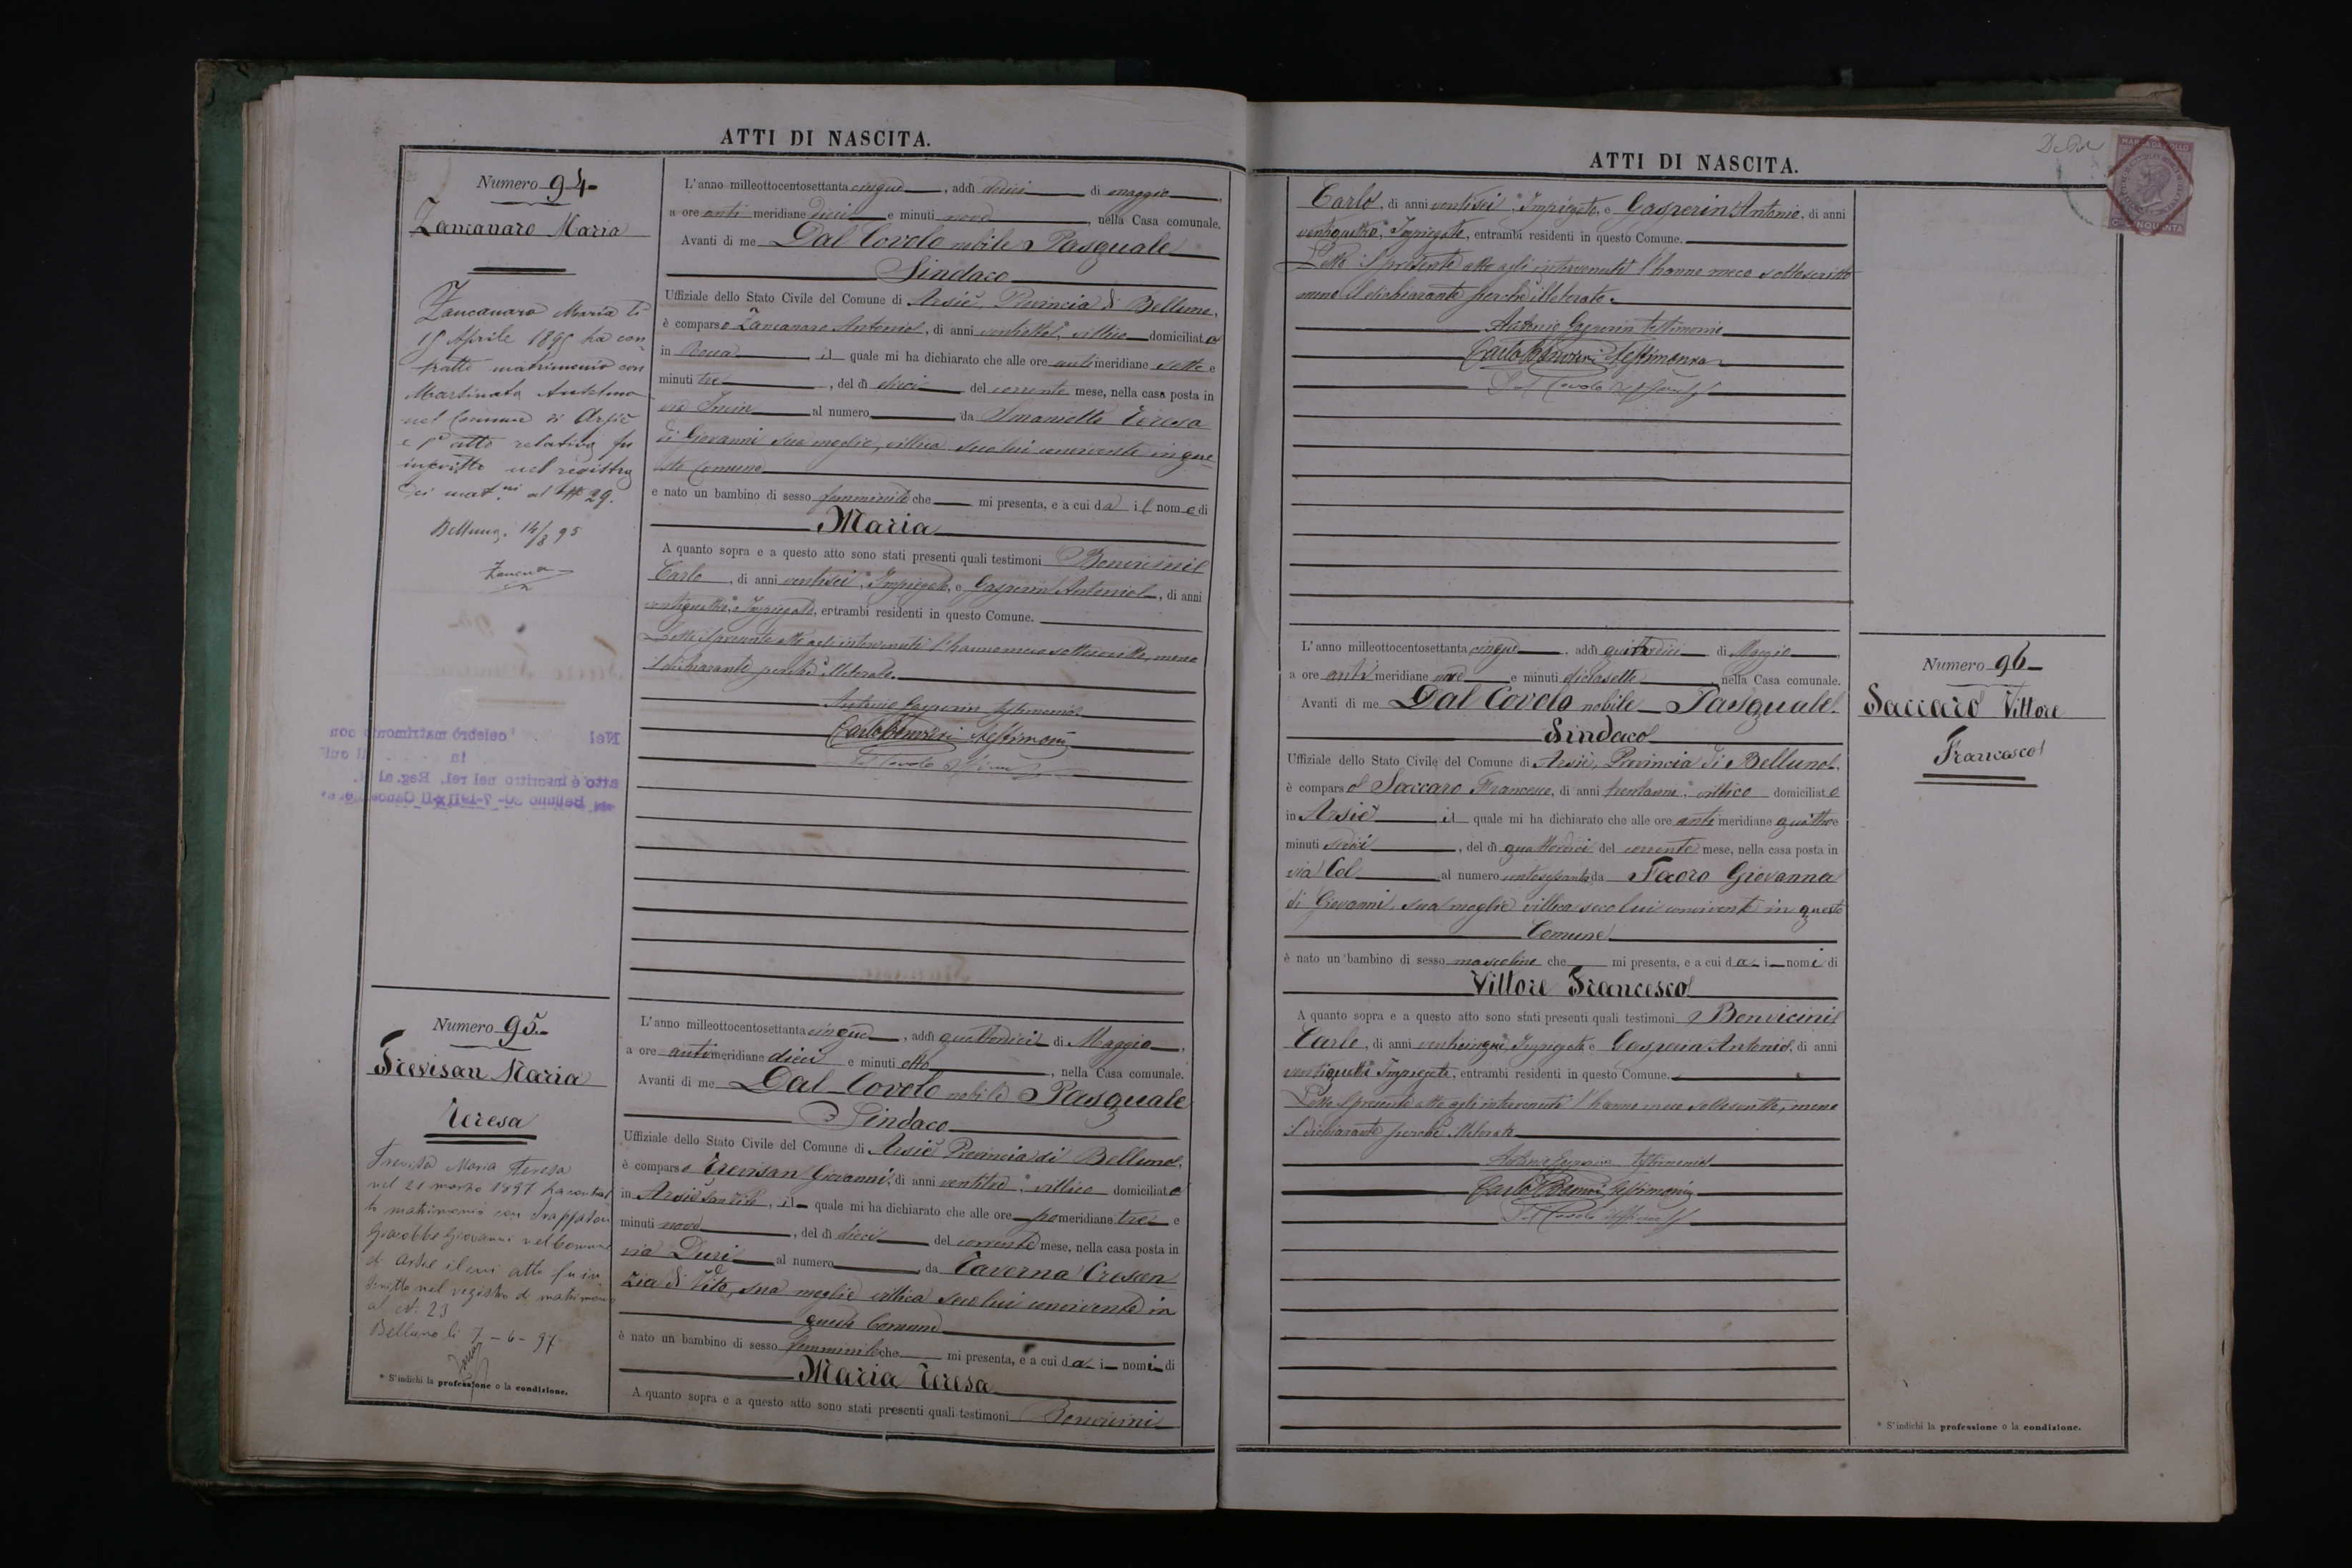 ATTI DI NASCITA.
Numero 94
Zancanaro Maria
Zancanaro Maria li
15 Aprile 1895 ha con
tratto matrimonio con
Martinato Antonio
nel Comune di Arsiè
e l'atto relativo fu
inscritto nel registro
dei mat.ni al N 29.
Belluno. 14/8 95
L'anno milleottocentosettanta cinque, addì dodici di maggio,
a ore anti meridiane dieci e minuti nove, nella Casa comunale.
Avanti di me Dal Covolo nobile Pasquale
Sindaco
Uffiziale dello Stato Civile del Comune di Arsiè, Provincia di Belluno,
è comparso Zancanaro Antonio, di anni ventotto, villico domiciliato
in Rocca, il quale mi ha dichiarato che alle ore antimeridiane sette e
minuti tre, del dì dieci del corrente mese, nella casa posta in
via al numero da Smaniotto Teresa
di Giovanni sua moglie, villica seco lui convivente in que
sto Comune
è nato un bambino di sesso femminile che mi presenta, e a cui dà il nome di
Maria
A quanto sopra e a questo atto sono stati presenti quali testimoni Benvicini
Carlo, di anni ventisei, Impiegato, e Gasperin Antonio, di anni
ventiquattro, Impiegato, entrambi residenti in questo Comune.
Letto il presente atto agli intervenuti l'hanno meco sottoscritto, meno
il dichiarante perchè illetterato.
Antonio Gasperin testimonio
Carlo Benvicini Testimonio
Numero 95
Trevisan Maria
Teresa
Trevisan Maria Teresa
nel 21 marzo 1897 ha contrat
to matrimonio con
Giacobbe Giovanni nel Comune
di Arsiè il cui atto fu in
scritto nel registro di matrimonio
al N. 23
Belluno li 7-6-97
* S'indichi la professione o la condizione.
L'anno milleottocentosettanta cinque, addì quattordici di Maggio,
a ore antimeridiane dieci e minuti otto, nella Casa comunale.
Avanti di me Dal Covolo nobile Pasquale
Sindaco
Uffiziale dello Stato Civile del Comune di Arsiè Provincia di Belluno,
è comparso Trevisan Giovanni, di anni villico domiciliato
in Arsiè, il quale mi ha dichiarato che alle ore pomeridiane tre e
minuti nove, del dì dieci del corrente mese, nella casa posta in
via Duri al numero, da Taverna Crescen
zia di Vito, sua moglie villica seco lui convivente in
questo Comune
è nato un bambino di sesso femminile che mi presenta, e a cui dà i nomi di
Maria Teresa
A quanto sopra e a questo atto sono stati presenti quali testimoni Benvicini
ATTI DI NASCITA.
MARCA DA BOLLO
Carlo, di anni ventisei, Impiegato, e Gasperin Antonio, di anni
ventiquattro, Impiegato, entrambi residenti in questo Comune.
Letto il presente atto agli intervenuti l'hanno meco sottoscritto
meno il dichiarante perchè illetterato.
Antonio Gasperin testimonio
Carlo Benvicini Testimonio
Numero 96
Saccaro Vittore
Francesco
L'anno milleottocentosettanta cinque, addì quattordici di Maggio,
a ore anti meridiane nove e minuti diciasette, nella Casa comunale.
Avanti di me Dal Covolo nobile Pasquale
Sindaco
Uffiziale dello Stato Civile del Comune di Arsiè, Provincia di Belluno,
è comparso Saccaro Francesco, di anni trentanove, villico domiciliato
in Arsiè il quale mi ha dichiarato che alle ore antimeridiane quattro e
minuti sedici, del dì quattordici del corrente mese, nella casa posta in
via Col al numero centosessanta da Faoro Giovanna
di Giovanni, sua moglie villica seco lui convivente in questo
Comune
è nato un bambino di sesso mascolino che mi presenta, e a cui dà i nomi di
Vittore Francesco
A quanto sopra e a questo atto sono stati presenti quali testimoni Benvicini
Carlo, di anni venticinque, Impiegato e Gasperin Antonio, di anni
ventiquattro Impiegato, entrambi residenti in questo Comune.
Letto il presente atto agli intervenuti l'hanno meco sottoscritto, meno
il dichiarante perchè illetterato
Antonio Gasperin testimonio
Carlo Benvicini Testimonio
* S'indichi la professione o la condizione.